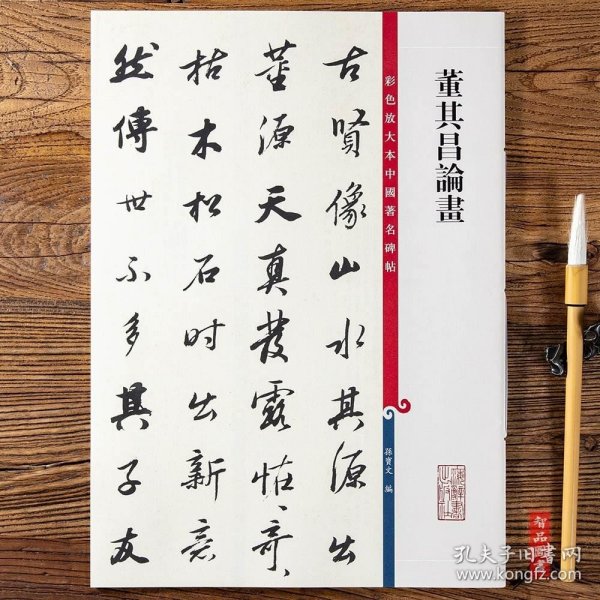 董其昌論畫
彩色放大本中國著名碑帖
孫寶文 編
古賢像山水其源出
董源天真發露怪怪奇
枯木松石时出新意
然傳世不多其子友
智品圖書
孔夫子旧书网
www.kongfz.com